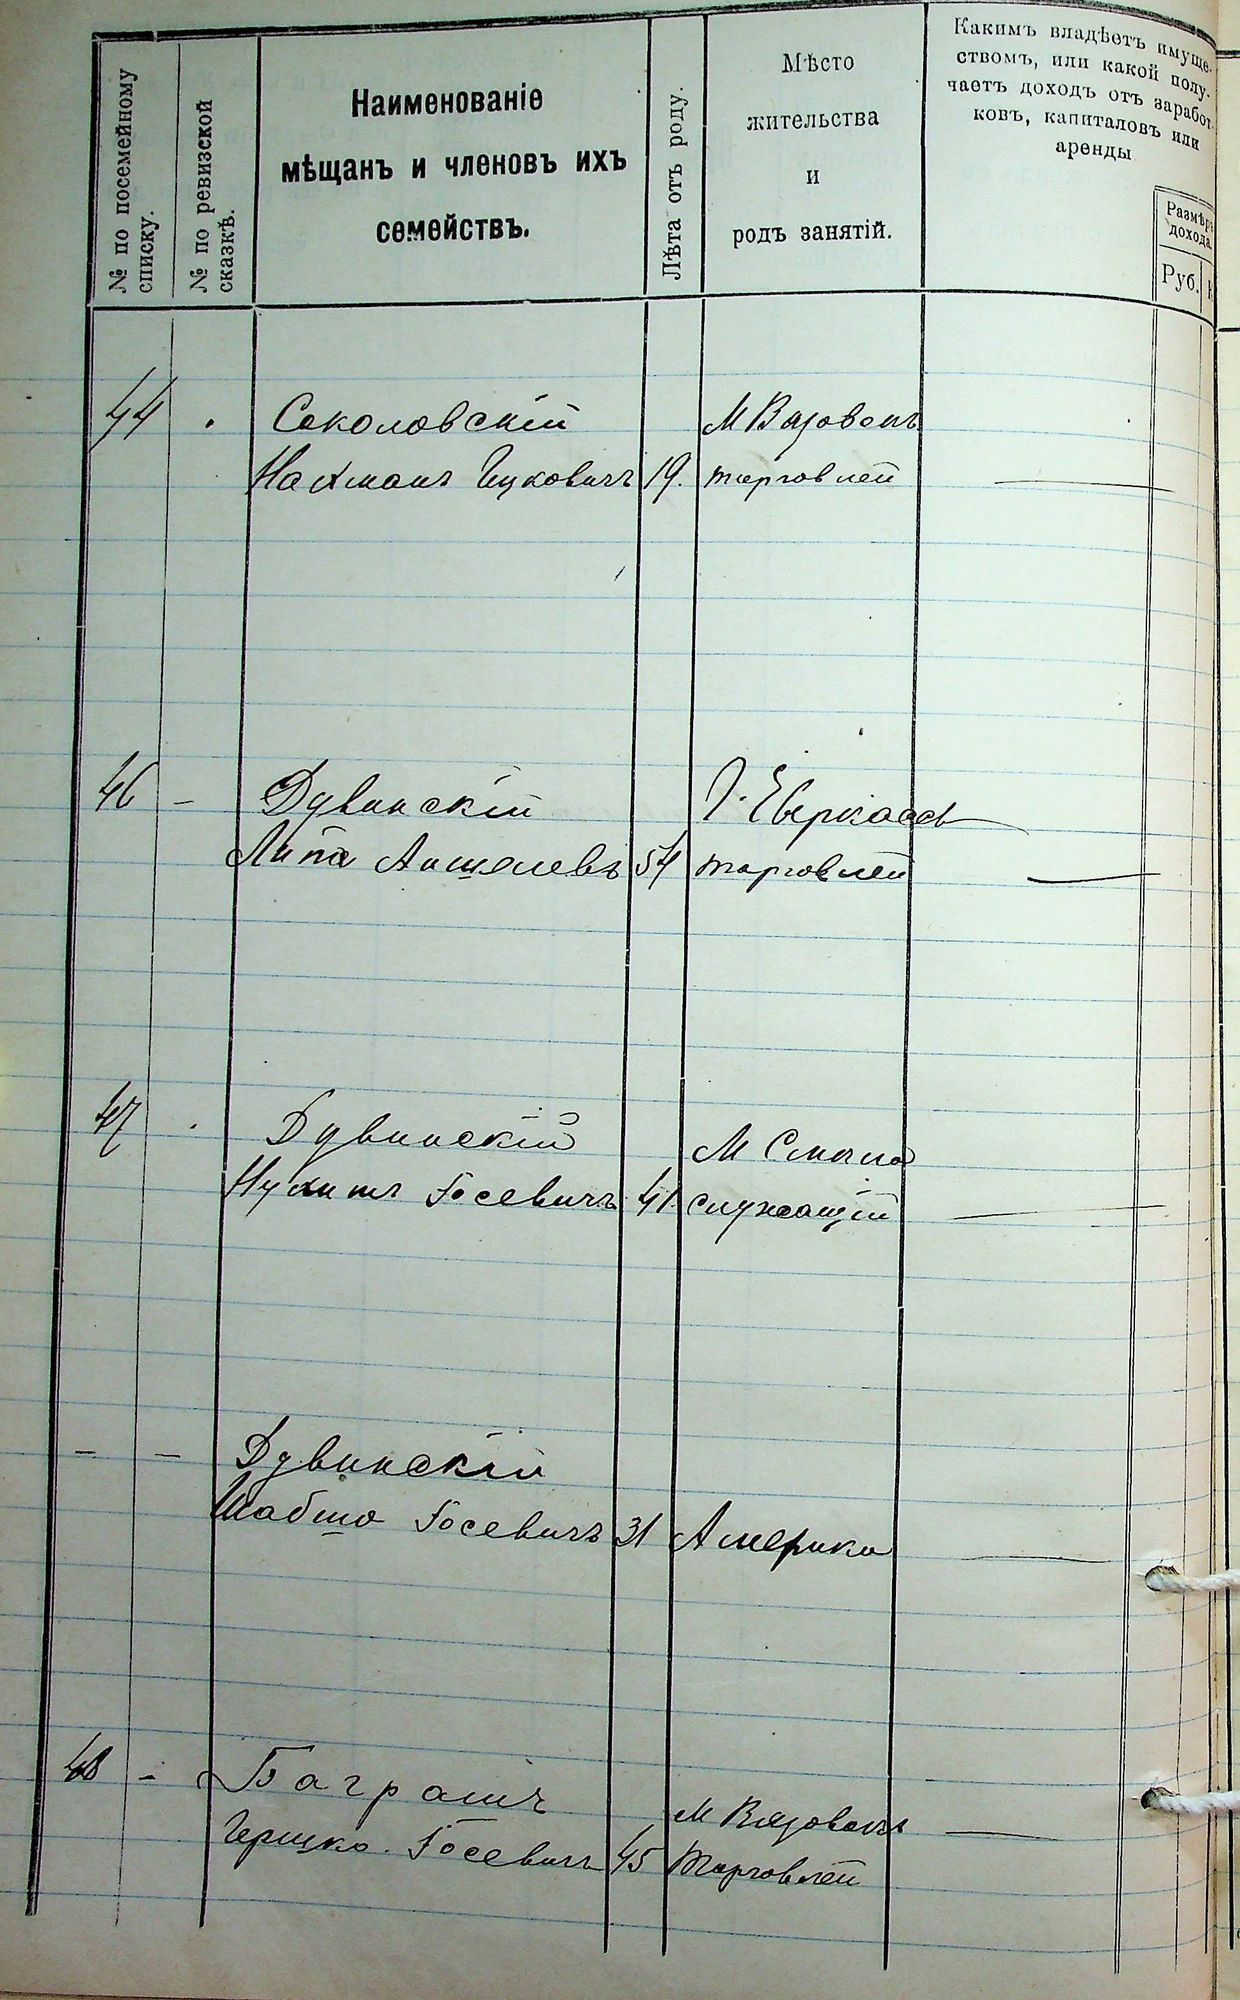 № по посемейному
списку.
№ по ревизской
сказкѣ.
Наименованіе
мѣщанъ и членовъ ихъ
семействъ.
Лѣта отъ роду.
Мѣсто
жительства
и
родъ занятій.
Какимъ владѣетъ имуще-
ствомъ, или какой полу-
чаетъ доходъ отъ заработ-
ковъ, капиталовъ или
аренды
Размѣръ
дохода.
Руб.
44 Соколовскій М Вязовокъ
Нахманъ Ицковичъ 19. торговлей
46 – Дувинскій Г. Черкассы
Липа Аншелевъ 54 торговлей
47 Дувинскій М Смѣла
Нухимъ Іосевичъ 41. служащій
– – Дувинскій
Шабшо Іосевичъ 31 Америка
48 – Баграшъ М Вязовокъ
Гершко Іосевичъ 45 Торговлей